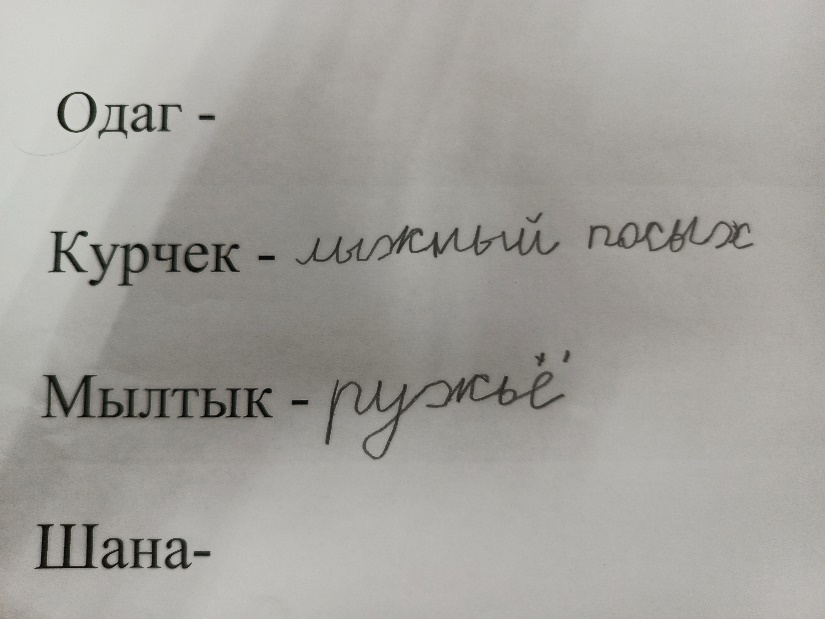 Одаг -
Курчек - лыжный посых
Мылтык - ружьё
Шана-